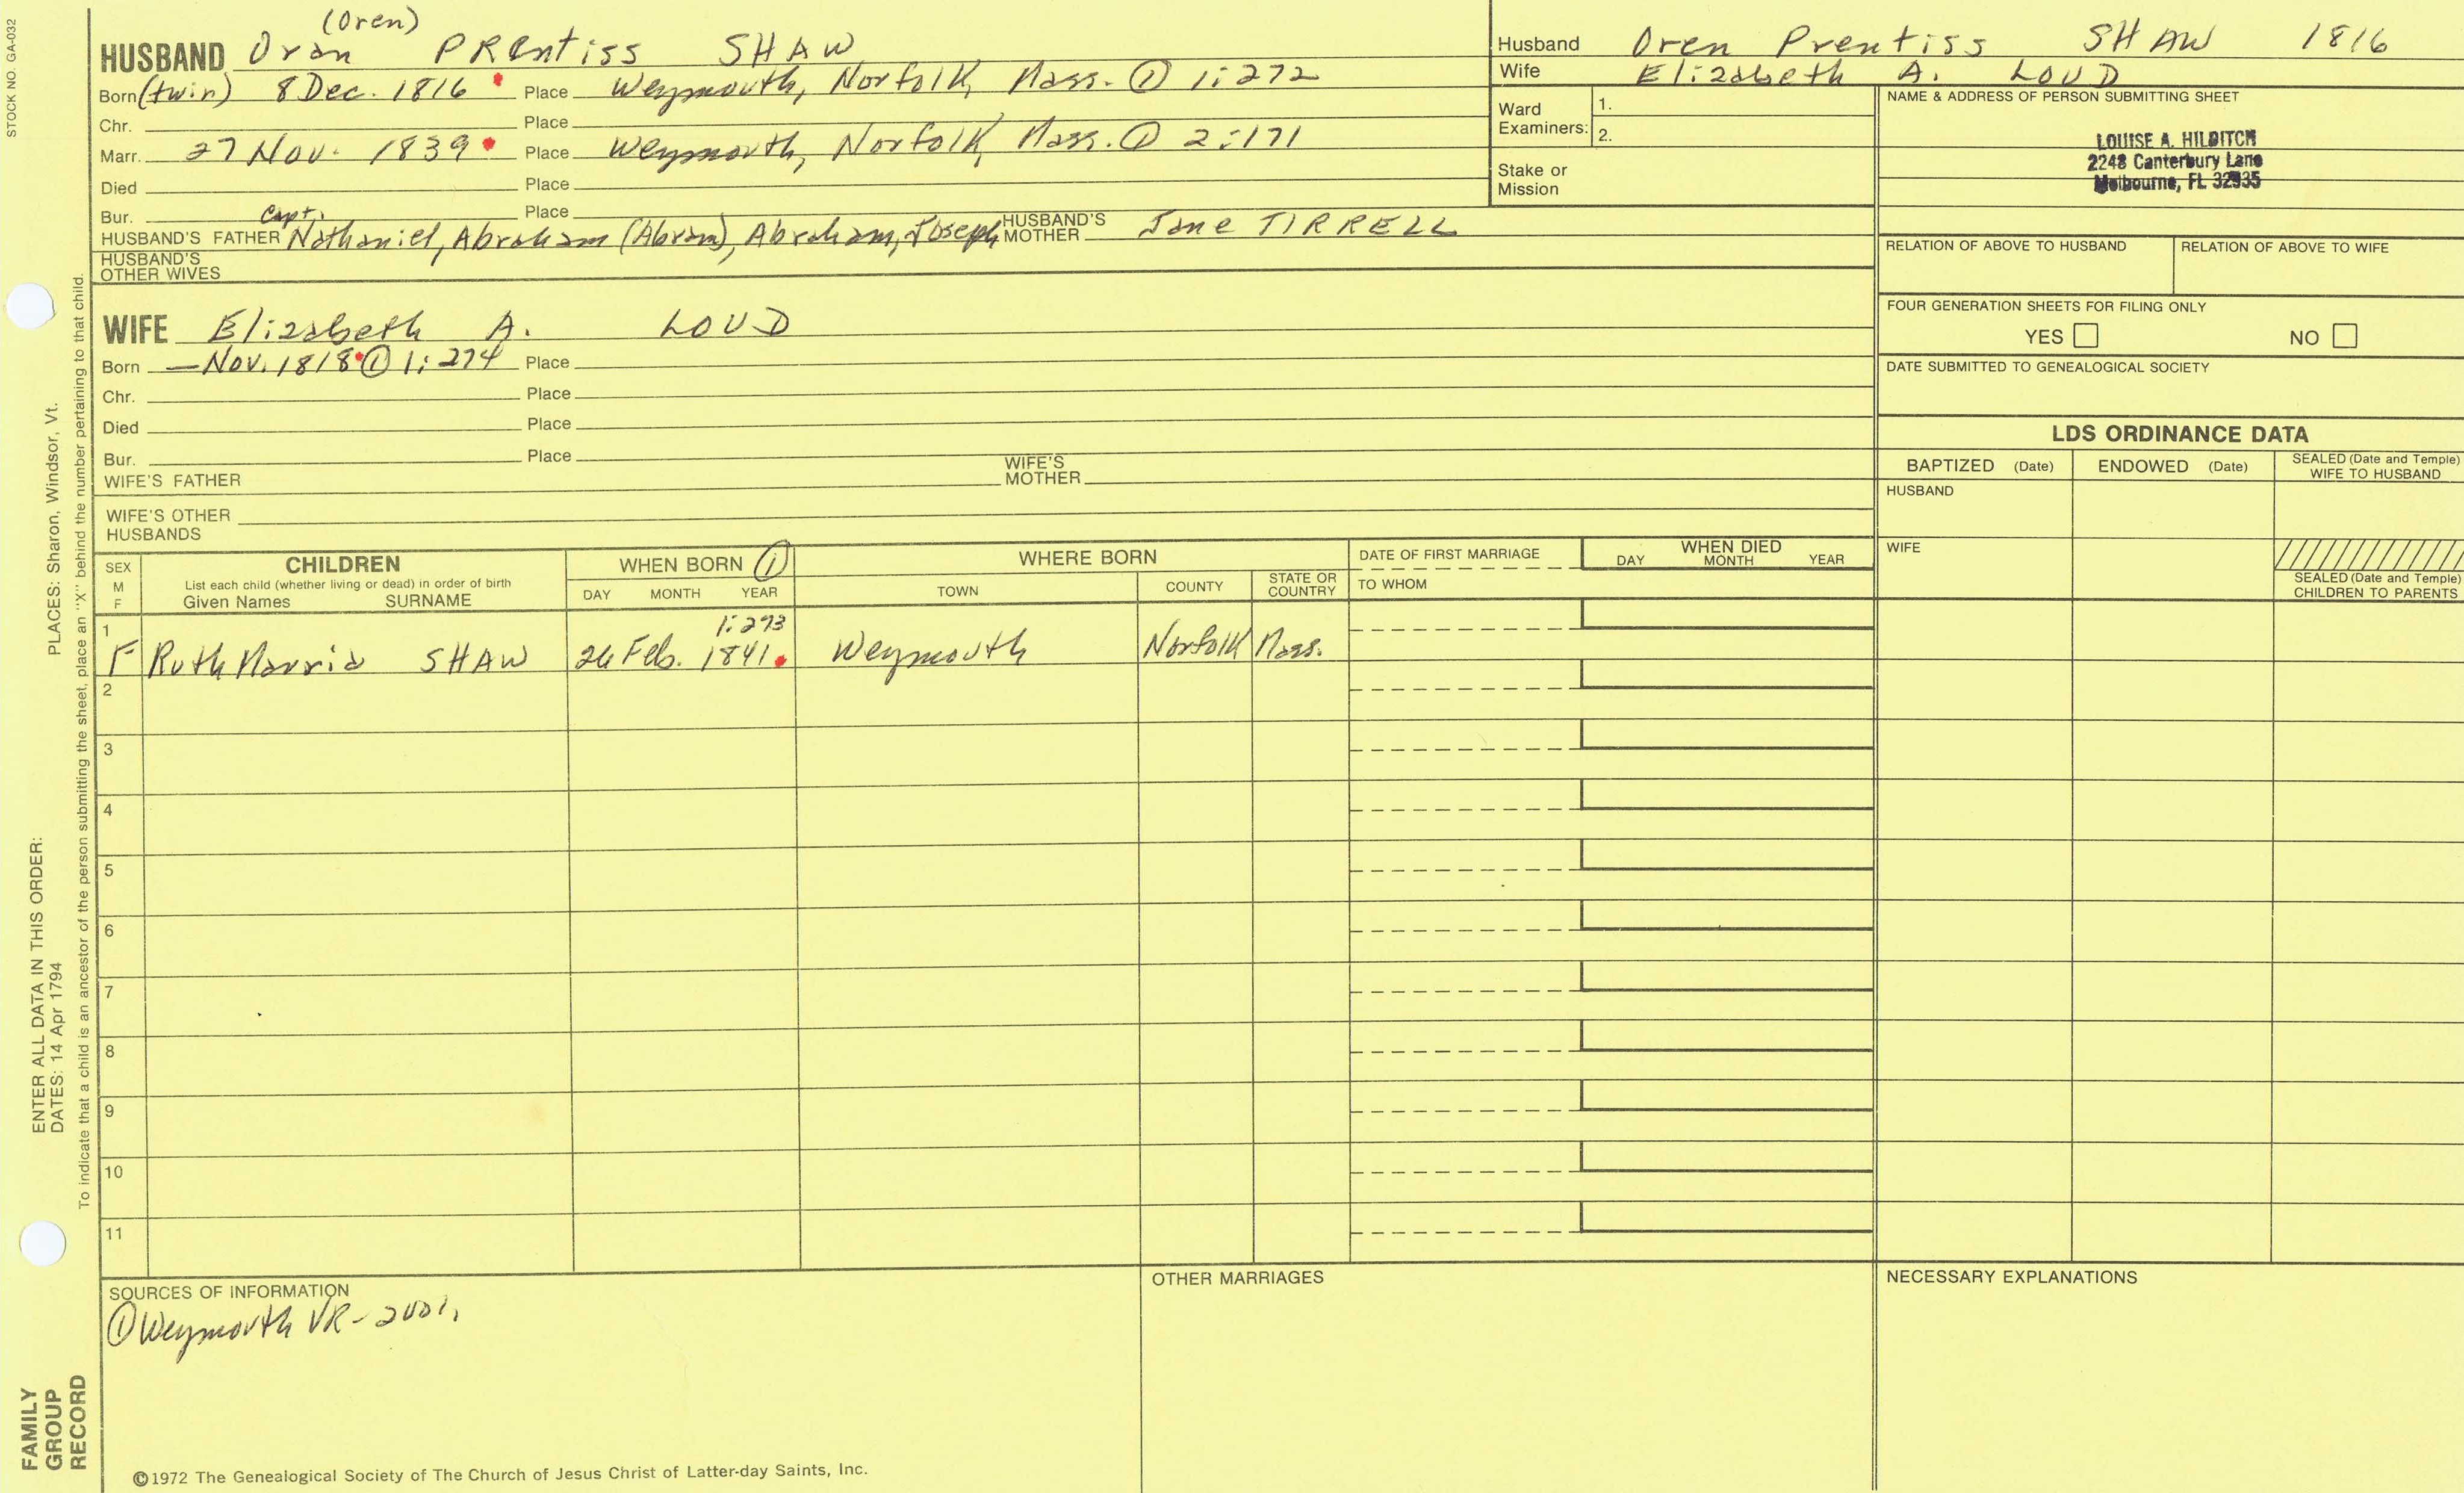 STOCK NO. GA-032
(Oren)
HUSBAND Oran PRentiss SHAW
Born (twin) 8 Dec. 1816 Place Weymouth, Norfolk, Mass. ① 1:272
Chr. Place
Marr. 27 Nov. 1839 Place Weymouth, Norfolk, Mass. ① 2:171
Died Place
Bur. Place
Capt.
HUSBAND'S FATHER Nathaniel, Abraham (Abram), Abraham, Joseph HUSBAND'S MOTHER Jane TIRRELL
HUSBAND'S
OTHER WIVES
Husband Oren Prentiss SHAW 1816
Wife Elizabeth A. LOUD
Ward
Examiners:
1.
2.
Stake or
Mission
NAME & ADDRESS OF PERSON SUBMITTING SHEET
LOUISE A. HILDITCH
2248 Canterbury Lane
Melbourne, FL 32935
RELATION OF ABOVE TO HUSBAND
RELATION OF ABOVE TO WIFE
FOUR GENERATION SHEETS FOR FILING ONLY
YES NO
DATE SUBMITTED TO GENEALOGICAL SOCIETY
WIFE Elizabeth A. LOUD
Born — Nov. 1818 ① 1:274 Place
Chr. Place
Died Place
Bur. Place
WIFE'S FATHER
WIFE'S
MOTHER
WIFE'S OTHER
HUSBANDS
LDS ORDINANCE DATA
BAPTIZED (Date)
ENDOWED (Date)
SEALED (Date and Temple)
WIFE TO HUSBAND
HUSBAND
WIFE
SEALED (Date and Temple)
CHILDREN TO PARENTS
SEX
M
F
CHILDREN
List each child (whether living or dead) in order of birth
Given Names SURNAME
WHEN BORN ①
DAY MONTH YEAR
WHERE BORN
TOWN
COUNTY
STATE OR
COUNTRY
DATE OF FIRST MARRIAGE
TO WHOM
WHEN DIED
DAY MONTH YEAR
1
1:293
F Ruth Marria SHAW 26 Feb. 1841. Weymouth Norfolk Mass.
2
3
4
5
6
7
8
9
10
11
SOURCES OF INFORMATION
① Weymouth VR - 2001.
OTHER MARRIAGES
NECESSARY EXPLANATIONS
©1972 The Genealogical Society of The Church of Jesus Christ of Latter-day Saints, Inc.
ENTER ALL DATA IN THIS ORDER:
DATES: 14 Apr 1794 PLACES: Sharon, Windsor, Vt.
To indicate that a child is an ancestor of the person submitting the sheet, place an "X" behind the number pertaining to that child.
FAMILY
GROUP
RECORD